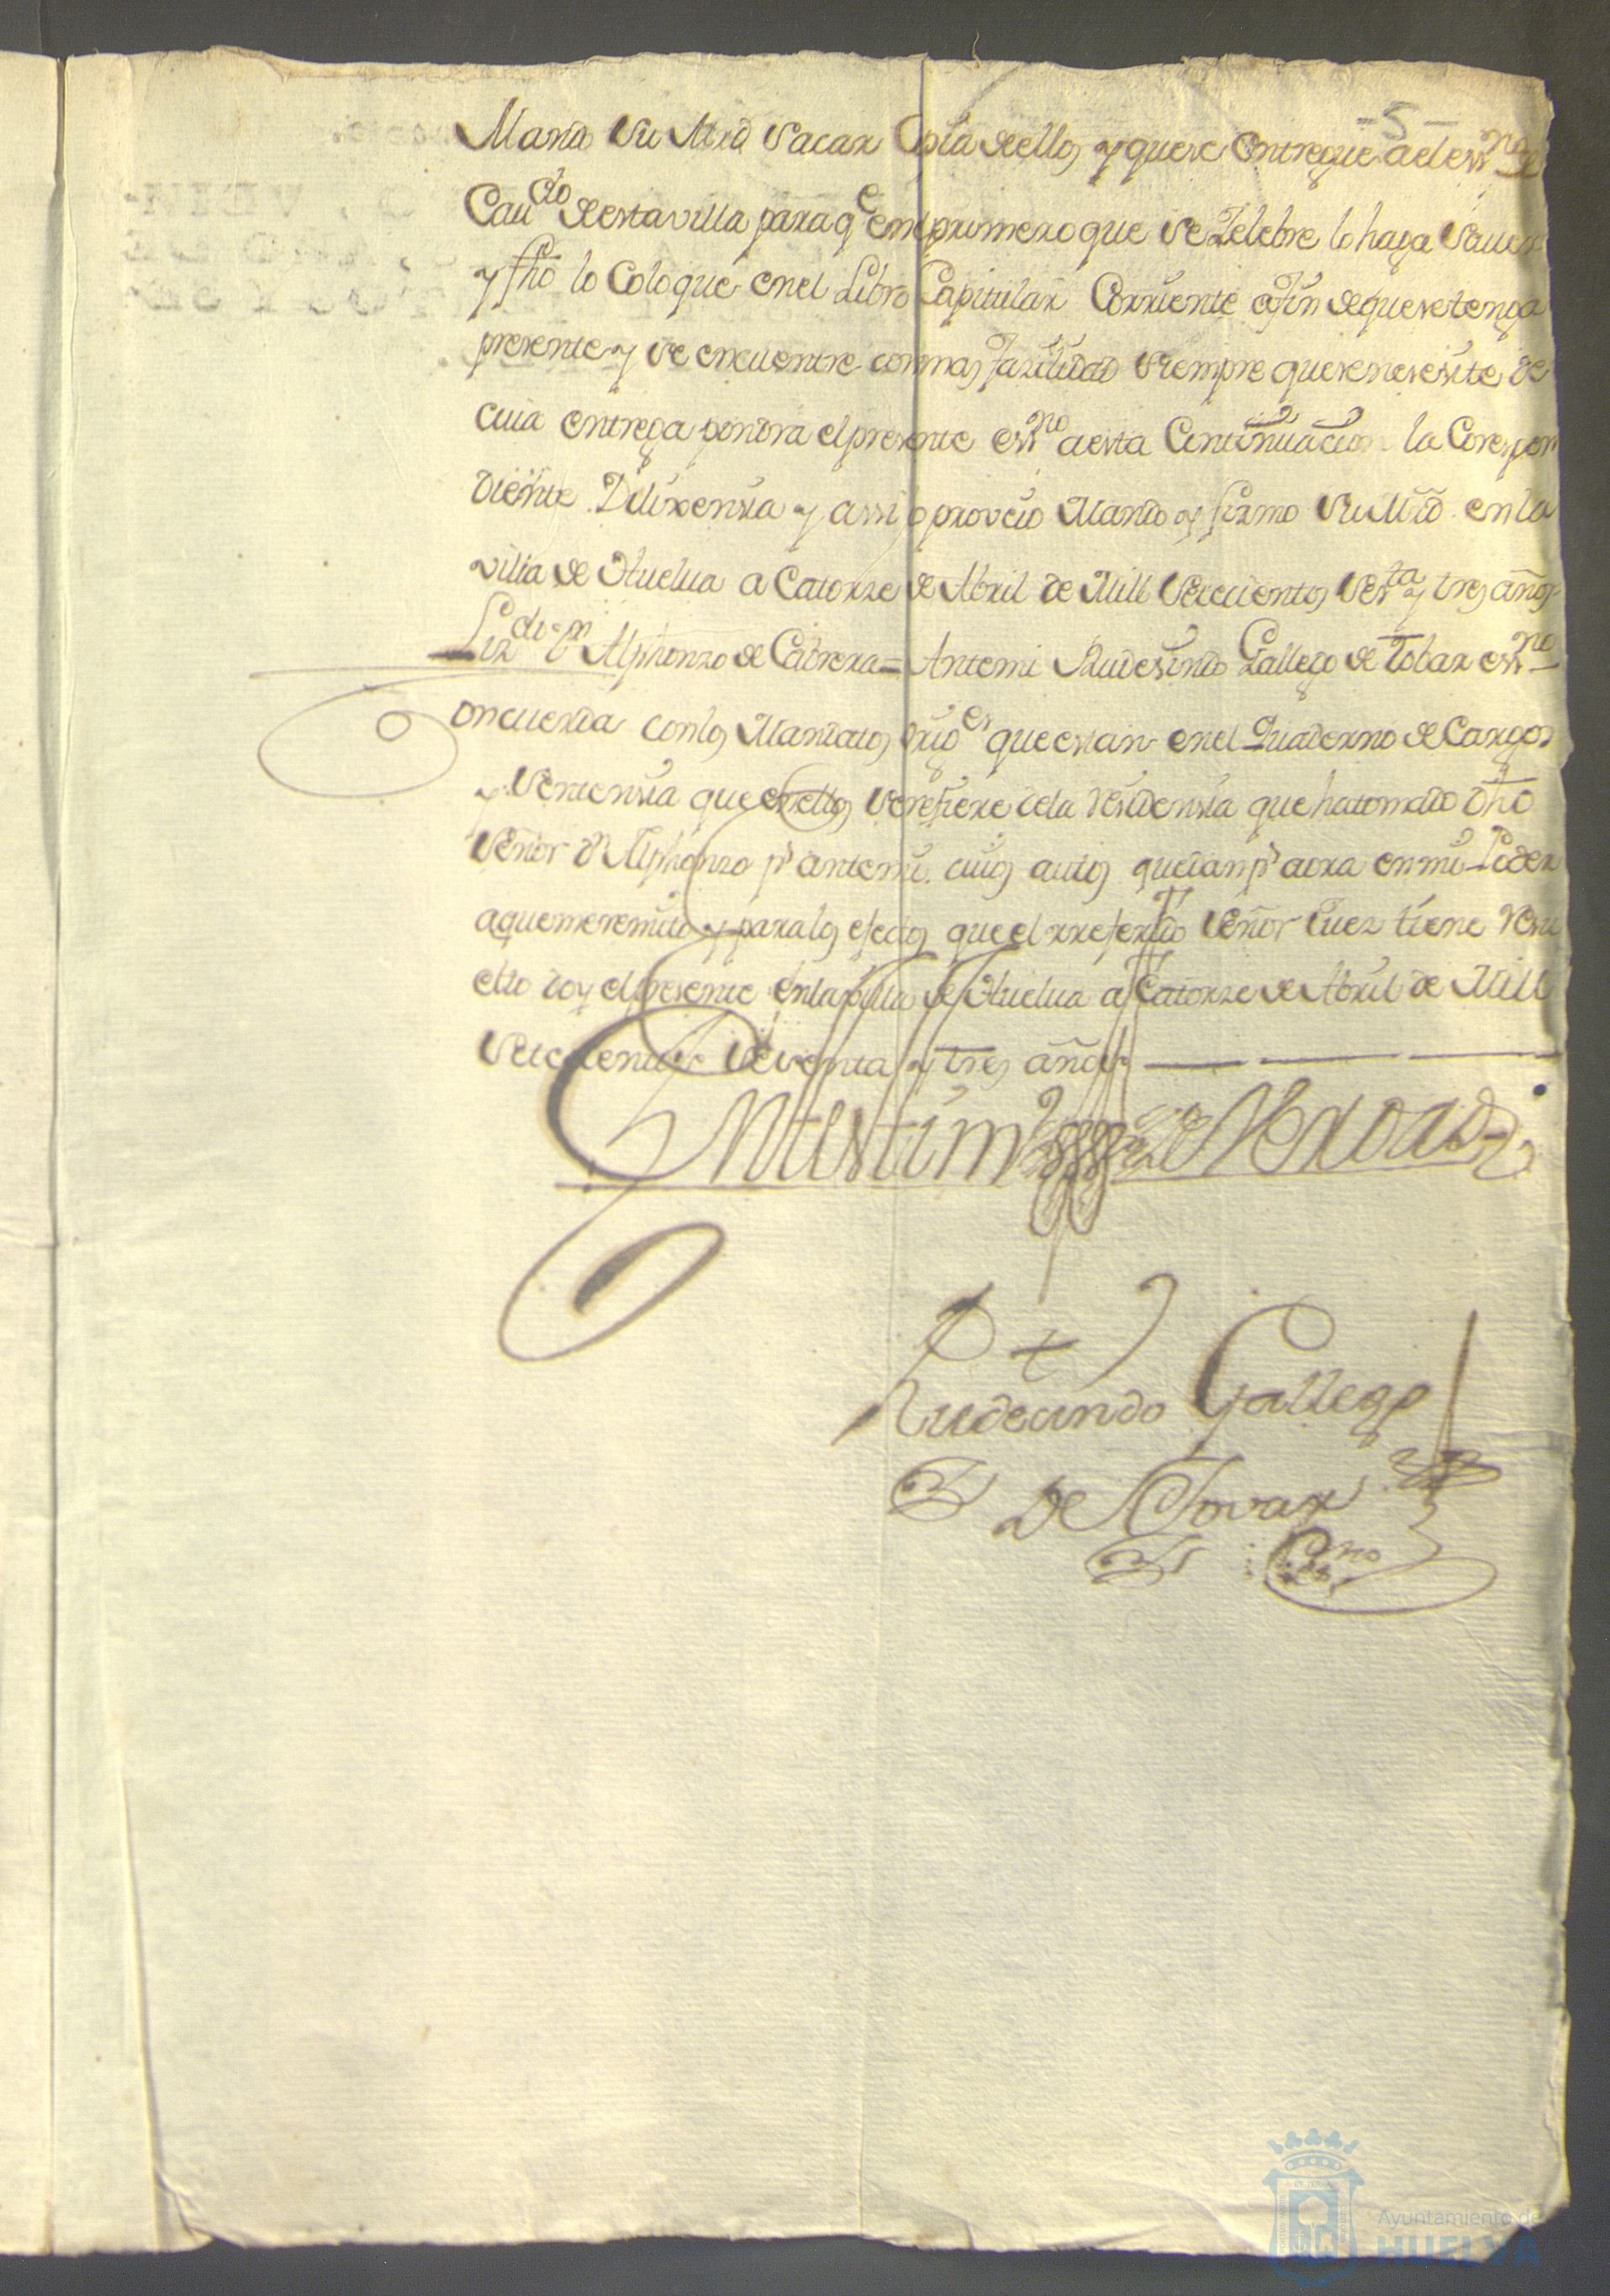 -5-
Mando Su Mrd Sacar Copia de ellos y que se Entregue a el essno de
Caudo de esta villa para qe en el primero que se Zelebre lo haga Saver
y fho lo Coloque en el Libro Capitular Corriente a fin de que se tenga
presente y se encuentre con mas fazilidad siempre que se nesesite de
cuia entrega pondra el presente essno a esta Continuacion la Correspon
diente Dilixensia y assi lo proveio Mando y firmo Su Mrd en la
villa de Huelua a Catorze de Abril de Mill Setecientos Sesta y tres años
Lizdo Dn Alphonzo de Cabrera = Ante mi Rudesindo Gallego de Tobar essno
Concuerda con los Mandatos orijes que estan en el Quaderno de Cargos
y Sentensia que en ellos se refiere de la residensia que ha tomado dho
Señor Dn Alphonzo pr ante mi cuios autos quedan pr aora en mi Poder
a que me remito y para los efectos que el rreferido Señor Juez tiene resu
elto doy el presente en la villa de Huelua a Catorze de Abril de Mill
Setecientos Sesenta y tres años
En testimo de Verdad
Rudecindo Gallego
De Tovar
Esno
Ayuntamiento de
HUELVA